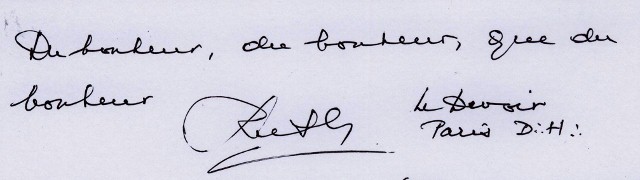 Du bonheur, du bonheur, que du
bonheur
Le Devoir
Paris D∴H∴